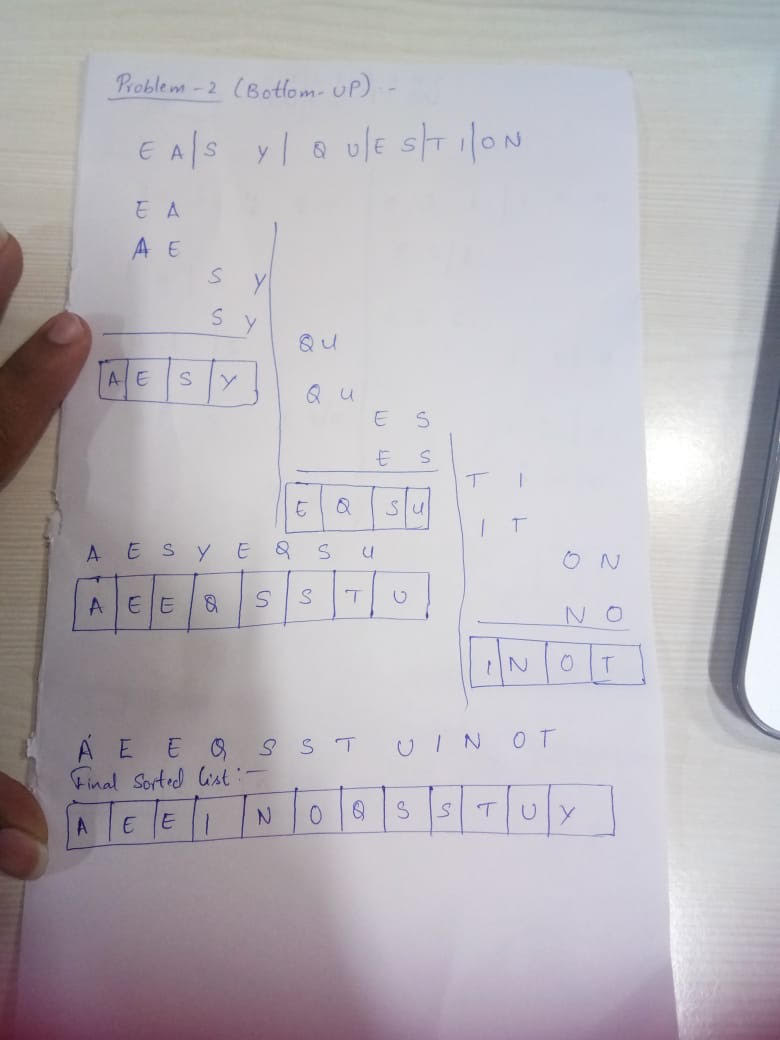 Problem-2 (Bottom-UP) :-
E A|S Y| Q U|E S|T I|O N
E A
A E
S Y
S Y
A E S Y
Q U
Q U
E S
E S
E Q S U
T I
I T
O N
N O
I N O T
A E S Y E Q S U
A E E Q S S T U
A E E Q S S T U I N O T
Final Sorted list:-
A E E I N O Q S S T U Y